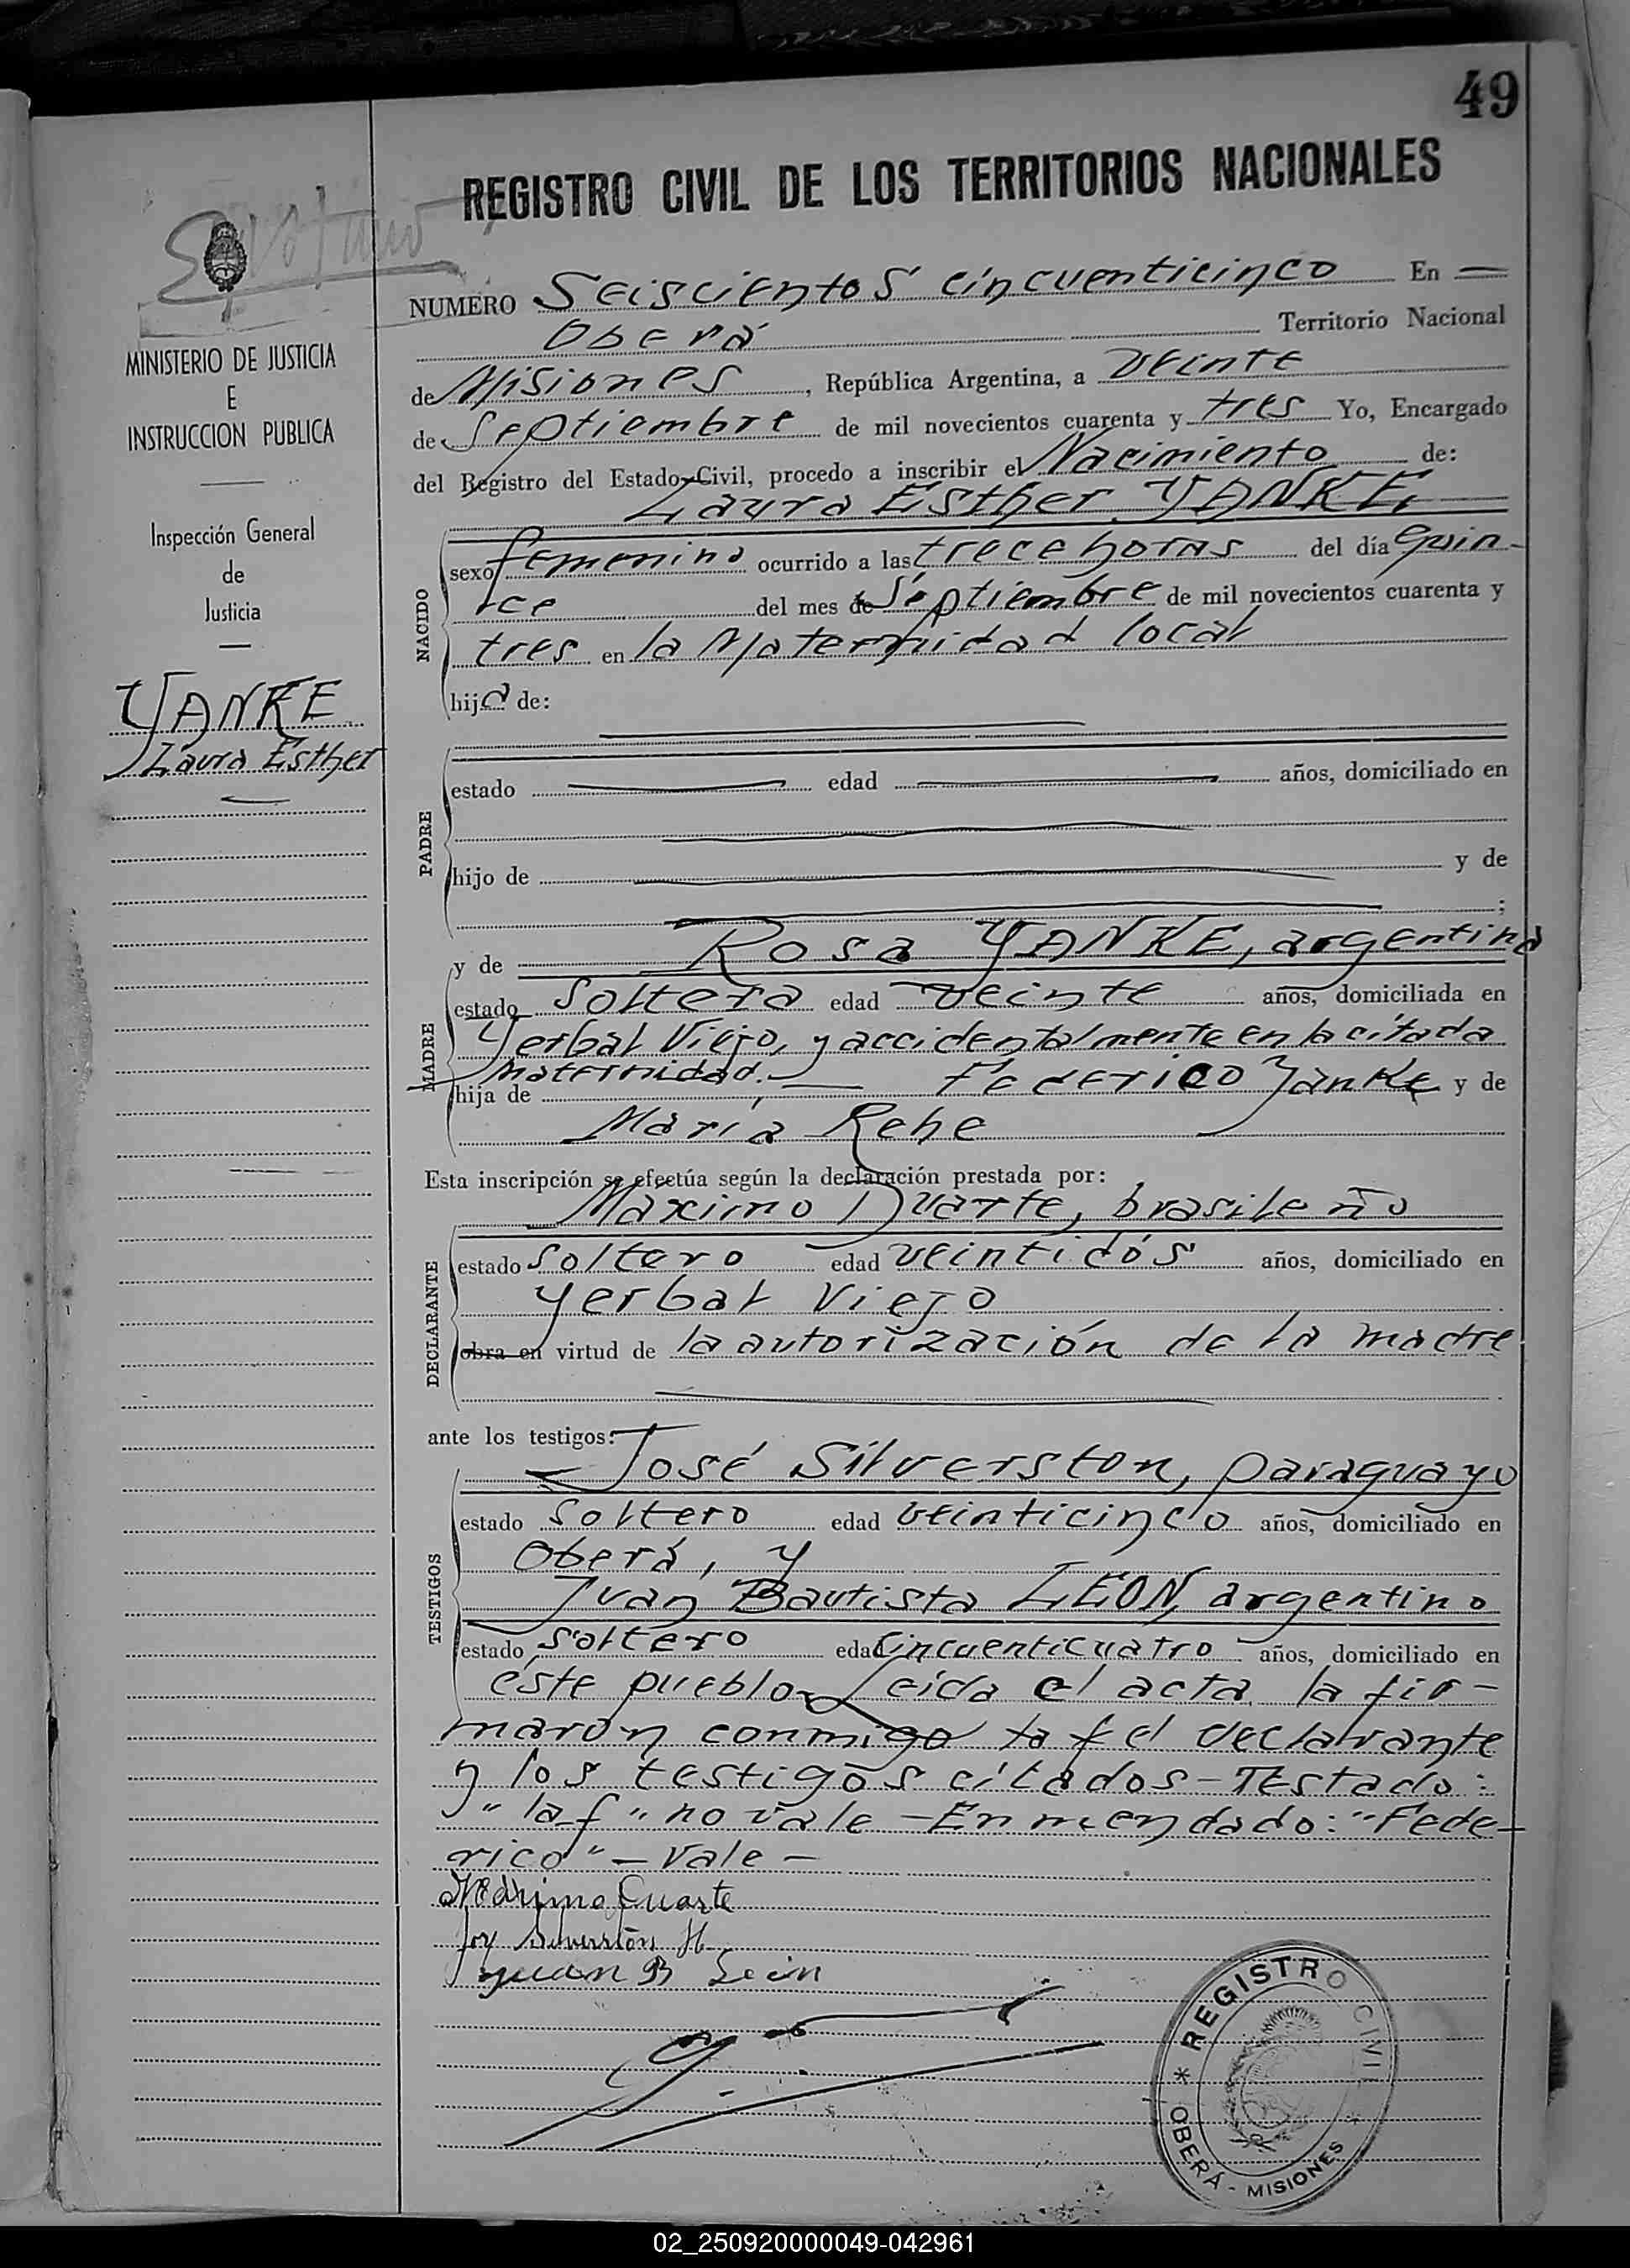 49
REGISTRO CIVIL DE LOS TERRITORIOS NACIONALES
MINISTERIO DE JUSTICIA
E
INSTRUCCION PUBLICA
Inspección General
de
Justicia
YANKE
Laura Esther
NUMERO Seiscientos cincuenticinco En —
Oberá Territorio Nacional
de Misiones, República Argentina, a veinte
de Septiembre de mil novecientos cuarenta y tres Yo, Encargado
del Registro del Estado Civil, procedo a inscribir el Nacimiento de:
Laura Esther YANKE
NACIDO
sexo femenino ocurrido a las trece horas del día quin-
ce del mes de Septiembre de mil novecientos cuarenta y
tres en la Maternidad local
hija de:
PADRE
estado edad años, domiciliado en
hijo de y de
;
MADRE
y de Rosa YANKE, argentina
estado soltera edad veinte años, domiciliada en
Yerbal Viejo, y accidentalmente en la citada
maternidad.—
hija de Federico Yanke y de
María Rehe
Esta inscripción se efectúa según la declaración prestada por:
DECLARANTE
Maximo Duarte, brasileño
estado soltero edad veintidós años, domiciliado en
Yerbal Viejo
obra en virtud de la autorización de la madre
ante los testigos:
TESTIGOS
José Silverston, paraguayo
estado soltero edad veinticinco años, domiciliado en
Oberá, y
Juan Bautista LEON, argentino
estado soltero edad cincuenticuatro años, domiciliado en
éste pueblo. Leida el acta la fir-
maron conmigo la f el declarante
y los testigos citados-Testado:
"la f" no vale - Enmendado: "Fede-
rico" - Vale -
Maximo Duarte
Silverston H
Juan B Leon
REGISTRO CIVIL
* OBERÁ - MISIONES *
02_250920000049-042961